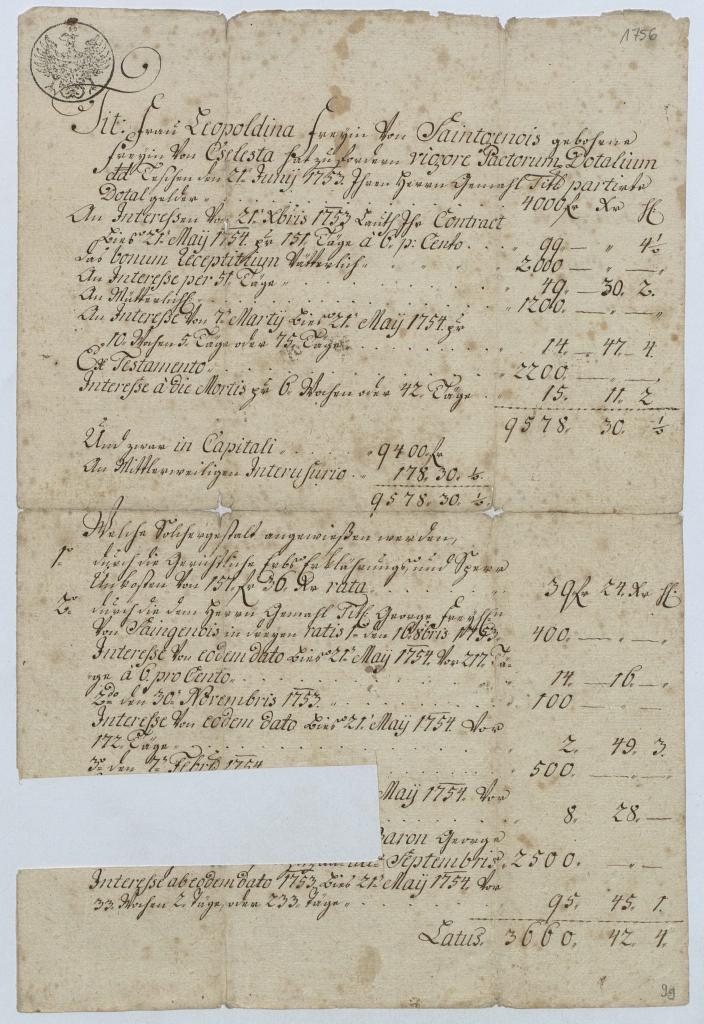 1756
Tit: Frau Leopoldina Freyin Von Saintgenois gebohrne
Freyin Von Cselesta hat zu fordern vigore Pactorum Dotalium
dtt Teschen den 21t Junij 1753. Ihren Herrn Gemahl Titl partirte
Dotal gelder 4000 fr Xr Hl.
An Interessen Von 21t Xbris 1753 Lauth Ihr Contract
Bies 21t Maij 1754. pr 151. Täge à 6. p: Cento. 99 — " 4½
Das bonum receptitium Vätterlich. 2000 — " — "
An Interesse per 51. Täge 49. — 30. 2.
An Mütterlich 1200. — " — "
An Interesse Von 7t Martij Bies 21t Maij 1754. pr
10. Wochen 5. Täge oder 75. Täge 14. — 47. — 4.
Ex Testamento 2200. — " — "
Interesse à die Mortis pr 6. Wochen oder 42. Täge 15. 11. 2
9578. 30. ½
Und zwar in Capitali 9400. fr
An Mittlerweiligen Interusurio 178. 30. ½.
9578. 30. ½.
Welche Solchergestalt angewießen werden,
1o durch die Gerichtliche Erbs Erklährungs, und Sperr
Unkosten Von 151. fr 36. Xr rata 39 fr 24. Xr Hl.
2o durch die dem Herrn Gemahl Titl George Freyh:n
Von Saingenois in dreyen ratis 1o den 16. 8bris 1753. 400. — " — "
Interesse Von eodem dato Bies 21t Maij 1754. Vor 217. Tä-
ge à 6. pro Cento 14. — 16. — "
2do den 30t Novembris 1753. 100 — " — "
Interesse Von eodem dato Bies 21t Maij 1754. Vor
172. Täge 2. 49. 3.
3o den 7t Febris 1754 500. — " — "
Maij 1754. Vor
8. 28. —
Baron George
Septembris. 2500. — " — "
Interesse ab eodem dato 1753. Bies 21t Maij 1754. Vor
33. Wochen 2. Täge, oder 233. Täge 95. 45. 1.
Latus. 3660. 42. 4.
99